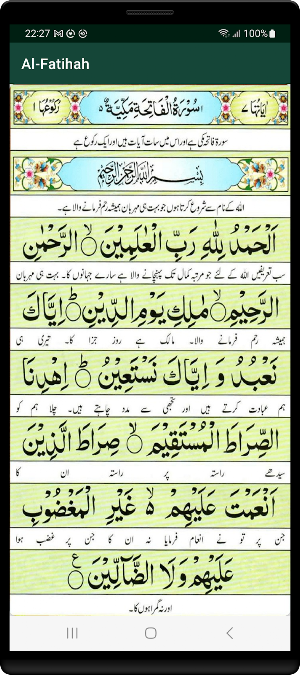 22:27
100%
Al-Fatihah
اٰیَاتُهَا ٧ سُوْرَةُ الْفَاتِحَةِ مَكِّیَّةٌ ٥ رُكُوْعُهَا ١
سورۃ فاتحہ مکی ہے اور اس میں سات آیات ہیں اور ایک رکوع ہے
بِسْمِ اللّٰهِ الرَّحْمٰنِ الرَّحِیْمِ
اللہ کے نام سے شروع کرتا ہوں جو بہت ہی مہربان ہمیشہ رحم فرمانے والا ہے۔
اَلْحَمْدُ لِلّٰهِ رَبِّ الْعٰلَمِیْنَ ۙ الرَّحْمٰنِ
سب تعریفیں اللہ کے لئے جو مرتبہ کمال تک پہنچانے والا ہے سارے جہانوں کا۔ بہت ہی مہربان
الرَّحِیْمِ ۙ مٰلِكِ یَوْمِ الدِّیْنِ ؕ اِیَّاكَ
ہمیشہ رحم فرمانے والا۔ مالک ہے روز جزا کا۔ تیری ہی
نَعْبُدُ وَ اِیَّاكَ نَسْتَعِیْنُ ؕ اِهْدِنَا
ہم عبادت کرتے ہیں اور تجھی سے مدد چاہتے ہیں۔ چلا ہم کو
الصِّرَاطَ الْمُسْتَقِیْمَ ۙ صِرَاطَ الَّذِیْنَ
سیدھے راستہ پر راستہ ان کا
اَنْعَمْتَ عَلَیْهِمْ ۙ۬ غَیْرِ الْمَغْضُوْبِ
جن پر تو نے انعام فرمایا نہ ان کا جن پر غضب ہوا
عَلَیْهِمْ وَلَا الضَّآلِّیْنَ ۠
اور نہ گمراہوں کا۔